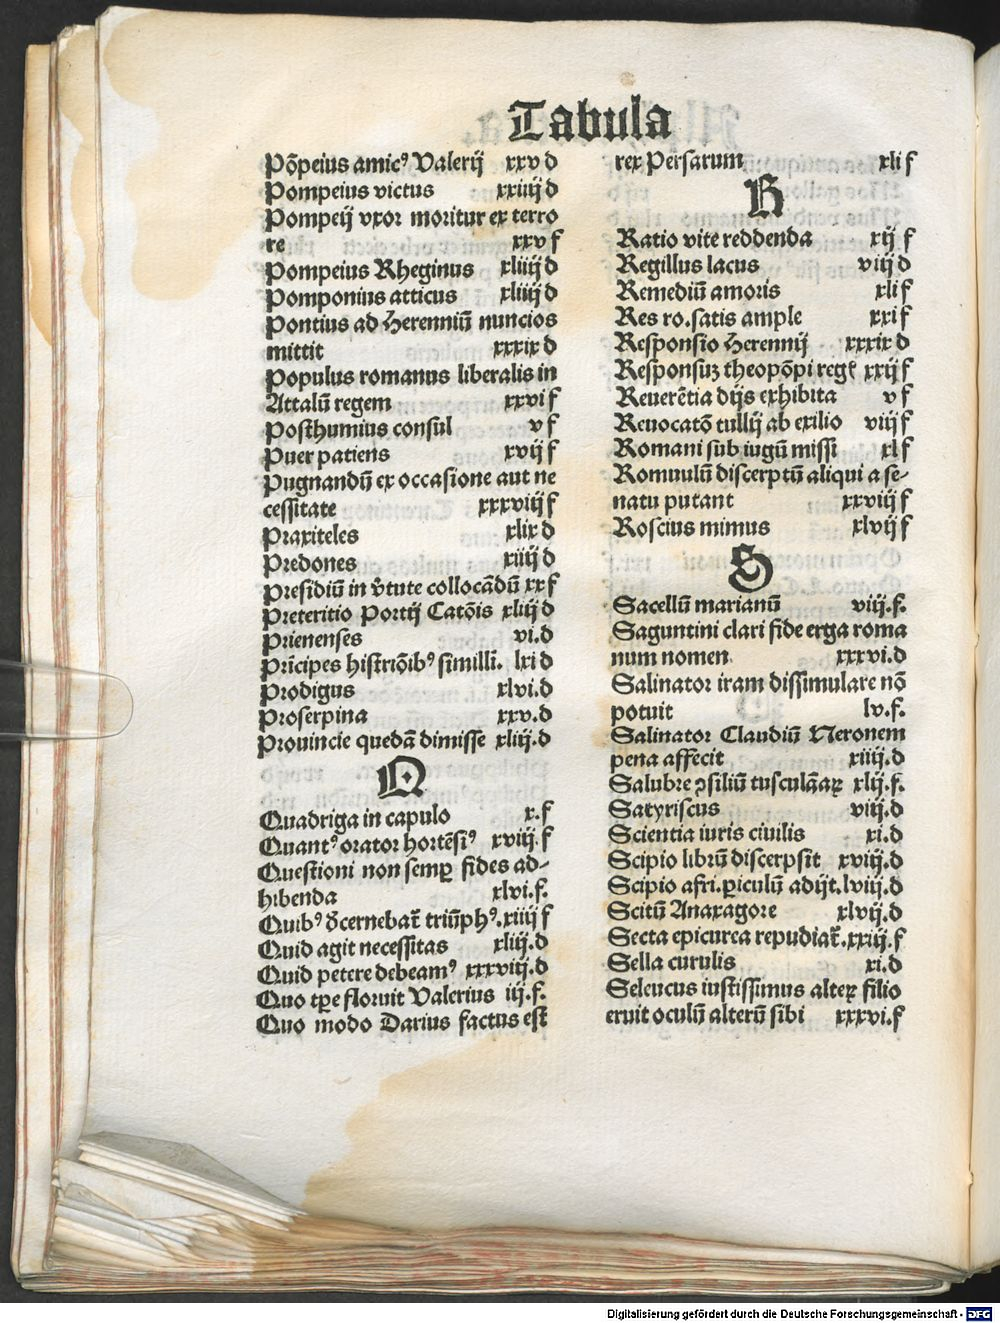 Tabula
Põpeius amicꝰ Valerij xxv d
Pompeius victus xxiiij d
Pompeij vxor moritur ex terro
re xxv f
Pompeius Rheginus xliiij d
Pomponius atticus xliiij d
Pontius ad Herenniũ nuncios
mittit xxxix d
Populus romanus liberalis in
Attalũ regem xxvi f
Posthumius consul v f
Puer patiens xvij f
Pugnandũ ex occasione aut ne
cessitate xxxviij f
Praxiteles xlix d
Predones xiiij d
Presidiũ in v̓tute collocãdũ xx f
Preteritio Portij Catõis xliij d
Prienenses vi.d
Prĩcipes histriõibꝰ simillĩ. lxi d
Prodigus xlvi.d
Proserpina xxv.d
Prouincie quedã dimisse xliij.d
Q
Quadriga in capulo x.f
Quantꝰ orator hortẽsiꝰ xviij f
Questioni non semꝑ fides ad-
hibenda xlvi.f.
Quibꝰ d̓cernebat̃ triũphꝰ.xiiij f
Quid agit necessitas xliij.d
Quid petere debeamꝰ xxxviij.d
Quo tꝑe floruit Valerius iij.f.
Quo modo Darius factus est
rex Persarum xli f
R
Ratio vite reddenda xij f
Regillus lacus viij d
Remediũ amoris xli f
Res ro.satis ample xxi f
Responsio Herennij xxxix d
Responsuʒ theopõpi regẽ xxij f
Reuerẽtia dijs exhibita v f
Reuocatõ tullij ab exilio viij f
Romani sub iugũ missi xl f
Romuulũ discerptũ aliqui a se-
natu putant xxviij f
Roscius mimus xlvij f
S
Sacellũ marianũ viij.f.
Saguntini clari fide erga roma
num nomen xxxvi.d
Salinator iram dissimulare nõ
potuit lv.f.
Salinator Claudiũ Neronem
pena affecit xiiij.d
Salubre ꝯsiliũ tusculãaꝝ xlij.f.
Satyriscus viij.d
Scientia iuris ciuilis xi.d
Scipio librũ discerpsit xviij.d
Scipio afri.ꝑiculũ adijt.lviij.d
Scitũ Anaxagore xlvij.d
Secta epicurea repudiat̃.xxiij.f
Sella curulis xi.d
Seleucus iustissimus alteꝝ filio
eruit oculũ alterũ sibi xxxvi.f
Digitalisierung gefördert durch die Deutsche Forschungsgemeinschaft - DFG